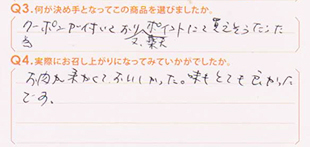 Q3.何が決め手となってこの商品を選びましたか。
クーポンが付いており、ポイントにて買えそうだった
為 又、楽天
Q4.実際にお召し上がりになってみていかがでしたか。
お肉が柔かくておいしかった。味もとても良かった
です。